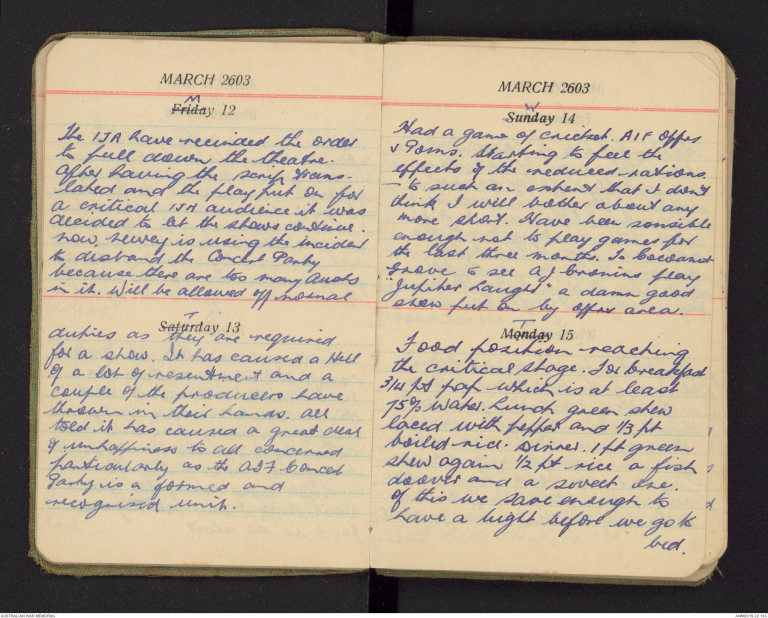 MARCH 2603
M
Friday 12
The IJA have recinded the order
to pull down the theatre.
After having the script trans-
lated and the play put on for
a critical IJA audience it was
decided to let the shows continue.
now, Newey is using the incident
to disband the Concert Party
because there are too many Ausks
in it. Will be allowed off normal
T
Saturday 13
duties as they are required
for a show. It has caused a Hell
of a lot of resentment and a
couple of the producers have
thrown in their hands. All
told it has caused a great deal
of unhappiness to all concerned
particularly as the AIF Concert
Party is a formed and
recognised unit.
MARCH 2603
W
Sunday 14
Had a game of cricket. AIF Offrs
v Poms. Starting to feel the
effects of the reduced rations.
– to such an extent that I don't
think I will bother about any
more sport. Have been sensible
enough not to play games for
the last three months. To Cocoanut
Grove to see A J Cronins play
"Jupiter Laughs" a damn good
show put on by offrs area.
T
Monday 15
Food position reaching
the critical stage. For breakfast
3/4 pt pap which is at least
75% water. Lunch green stew
laced with pepper and 1/3 pt
boiled rice. Dinner. 1 pt green
stew again 1/2 pt rice a fish
doover and a sweet one.
Of this we save enough to
have a bight before we go to
bed.
AUSTRALIAN WAR MEMORIAL